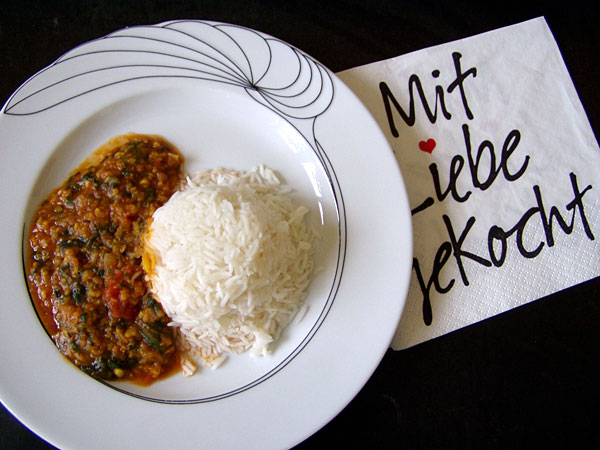 Mit
Liebe
geKocht